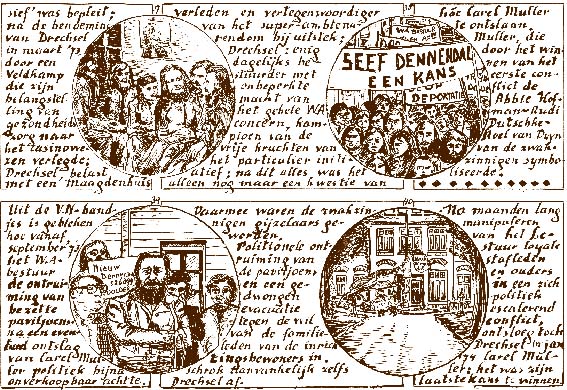 sief was bepleit;
na de benoeming
van Drechsel
in maart '73
door een
Veldkamp
die zijn
belangstel-
ling van
gezondheids-
zorg naar
het casinowe-
zen verlegde;
Drechsel belast
met een maagdenhuis
37
verleden en vertegenwoordiger
van het super-ambtena-
rendom bij uitstek;
Drechsel: enig
dagelijks be-
stuurder met
onbeperkte
macht van
het gehele WA-
concern, kam-
pioen van de
vrije vruchten van
het particulier initi-
atief; na dit alles, was het
alleen nog maar een kwestie van
38
SEEF DENNENDAL
EEN KANS
DEPORTATI
hoe Carel Muller
te ontslaan.
Muller, die
door het win-
nen van het
eerste con-
flict de
Abbie Hof-
man-Rudi
Dutschke-
Roel van Duyn
van de zwak-
zinnigen symbo-
liseerde.
Uit de V.N.-band-
jes is gebleken
hoe vanaf
september '73
het W.A.-
bestuur
de ontrui-
ming van
bezette
paviljoens,
na een even-
tueel ontslag
van Carel Mul-
ler politiek bijna
onverkoopbaar achtte.
39
Nieuw
Dennendal
Daarmee waren de zwakzin-
nigen gijzelaars ge-
worden.
Politionele ont-
ruiming van
de paviljoens
en een ge-
dwongen
evacuatie
tegen de wil
van de familie-
leden van de inrich-
tingsbewoners in.
schrok aanvankelijk zelfs
Drechsel af.
40
Na maanden lang
manipuleren
van het be-
stuur loyale
stafleden
en ouders
in een zich
politiek
escalerend
conflict
ontsloeg toch
Drechsel in jan.
'74 Carel Mul-
ler; het was zijn
laatste kans te winnen.